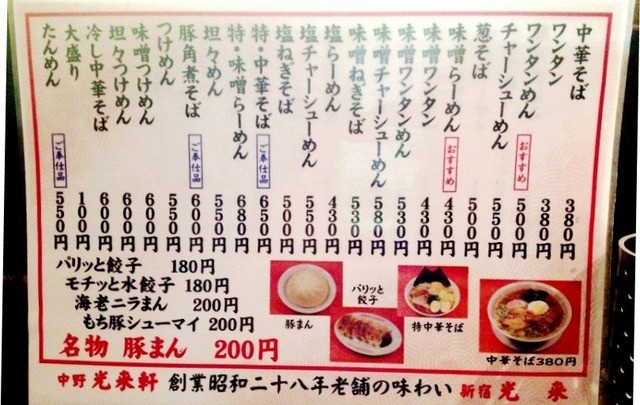 中華そば 380円
ワンタン 380円
ワンタンめん おすすめ 500円
チャーシューめん 500円
葱そば 500円
味噌らーめん おすすめ 430円
味噌ワンタン 430円
味噌ワンタンめん 530円
味噌チャーシューめん 580円
味噌ねぎそば 530円
塩らーめん 430円
塩チャーシューめん 550円
塩ねぎそば 500円
特・中華そば ご奉仕品 650円
特・味噌らーめん 680円
坦々めん 550円
豚角煮そば ご奉仕品 650円
つけめん 550円
味噌つけめん 600円
坦々つけめん 600円
冷し中華そば 600円
大盛り 100円
たんめん ご奉仕品 550円
パリッと餃子 180円
モチッと水餃子 180円
海老ニラまん 200円
もち豚シューマイ 200円
名物 豚まん 200円
豚まん
パリッと
餃子
特中華そば
中華そば380円
中野 光来軒 創業昭和二十八年老舗の味わい 新宿 光来